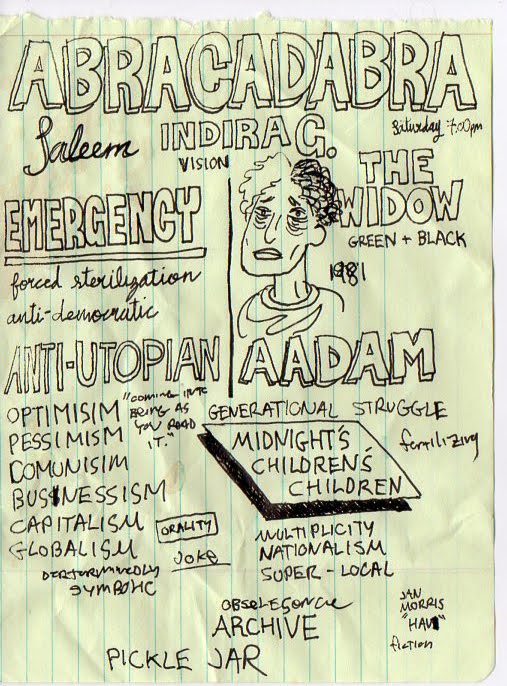 ABRACADABRA
Saturday 7:00pm
Saleem
INDIRA G.
VISION
THE
WIDOW
GREEN + BLACK
1981
EMERGENCY
forced sterilization
anti-democratic
ANTI-UTOPIAN
AADAM
OPTIMISIM
PESSIMISM
COMUNISIM
BUSINESSISM
CAPITALISM
GLOBALISM
"COMING INTO
BEING AS
YOU READ
IT."
ORALITY
JOKE
SYMBOLIC
GENERATIONAL STRUGGLE
MIDNIGHT'S
CHILDREN'S
CHILDREN
fertilizing
MULTIPLICITY
NATIONALISM
SUPER-LOCAL
ARCHIVE
PICKLE JAR
JAN
MORRIS
"HAV"
fiction